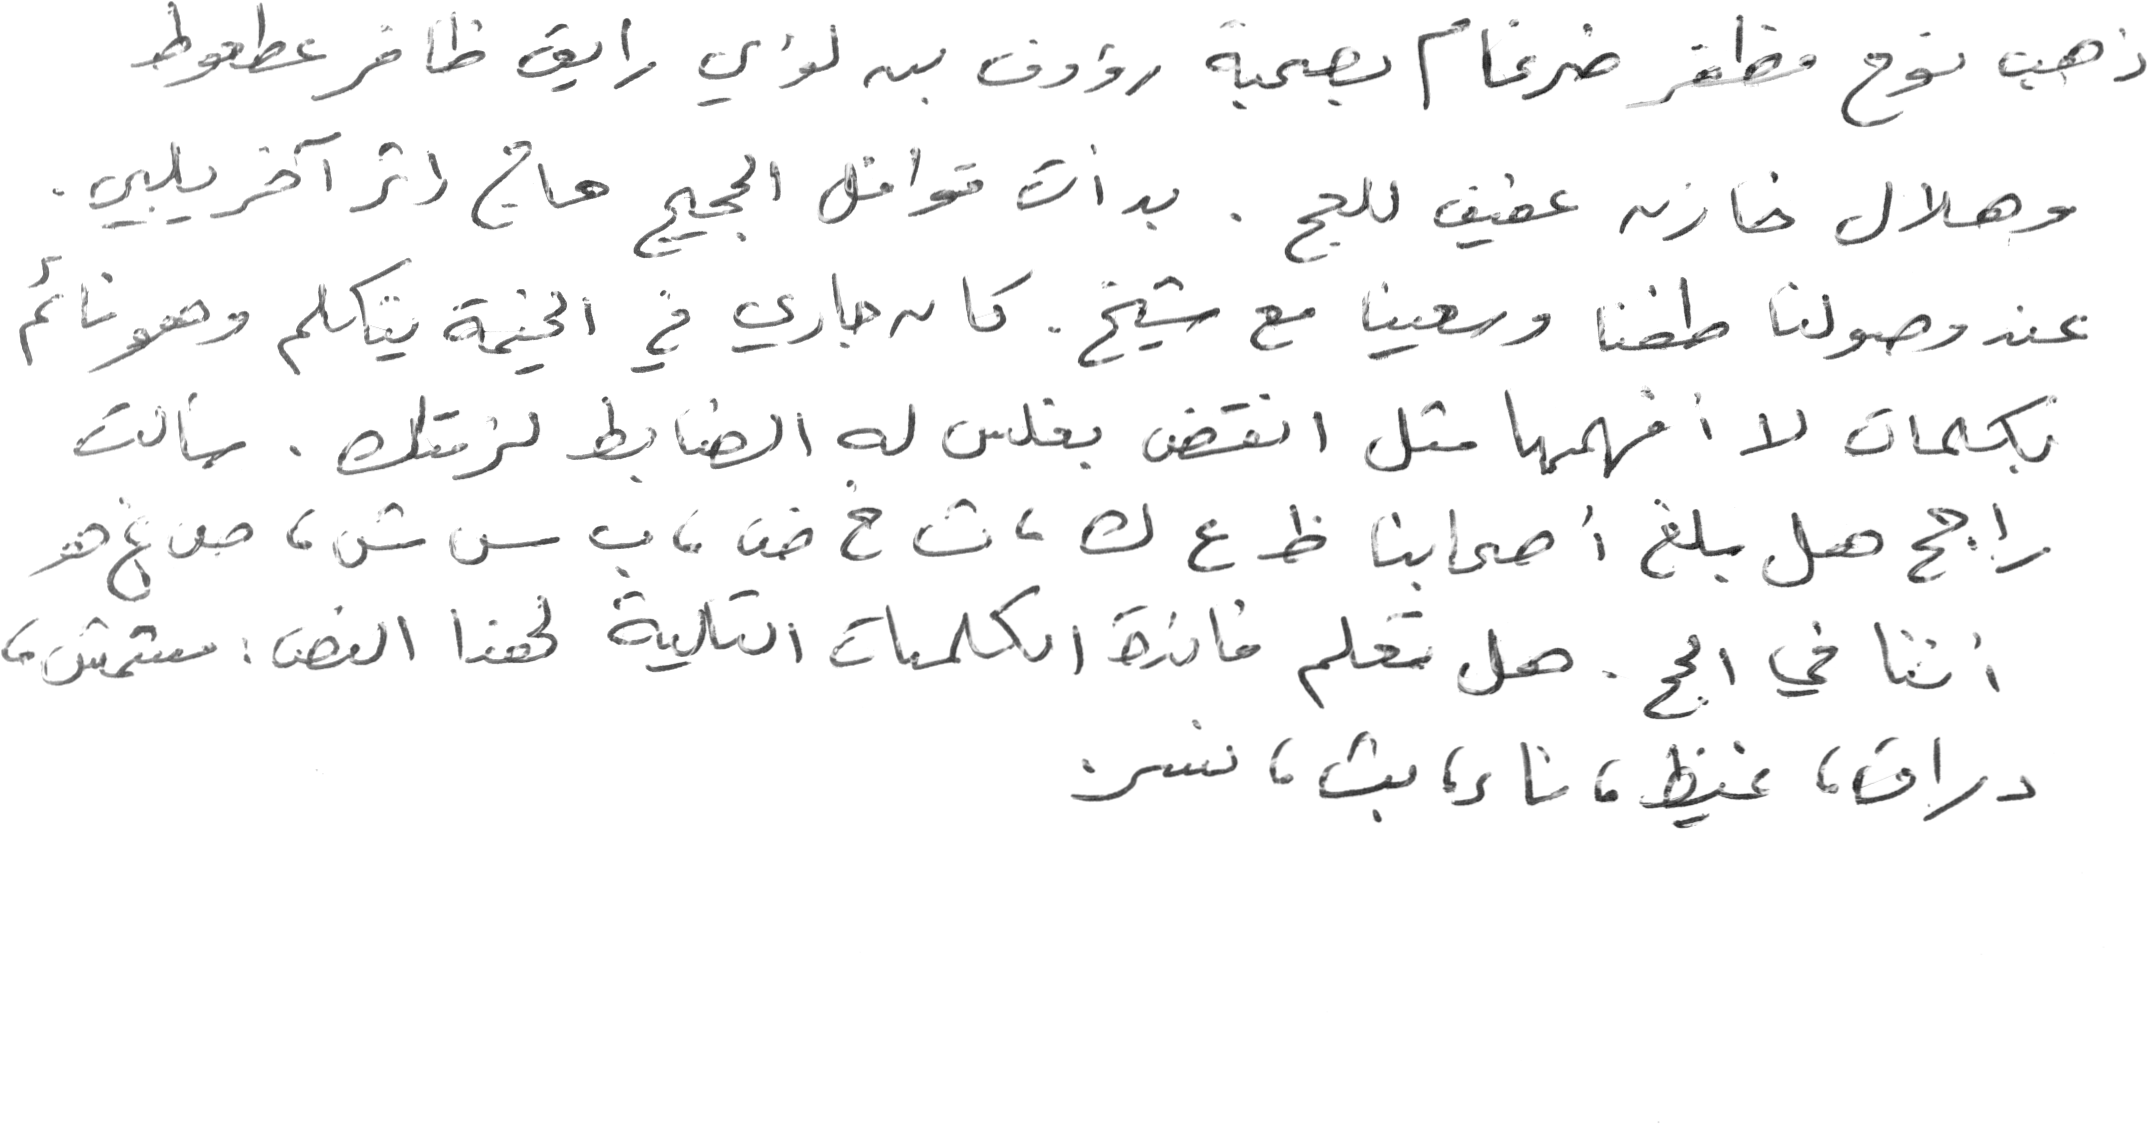 ذهب نوح مظفر ضرغام بصحبة رؤوف بن لؤي رايق ظافر عطعوط
وهلال خازن عفيف للحج . بدأت قوافل الحجيج حاج إثر آخر يلبي .
عند وصولنا طفنا وسعينا مع شيخ . كان جاري في الخيمة يتكلم وهو نائم
بكلمات لا أفهمها مثل انقض بغلس له الضابط لزمتك . سألت
راجح هل بلغ أصحابنا ظ ع ك ، ث خ ض ، ب س ش ، ص غ هـ
أننا في الحج . هل تعلم فائدة الكلمات التالية لهذا النص : مشمش ،
دراق ، غيظ ، ناء ، بث ، نسر .